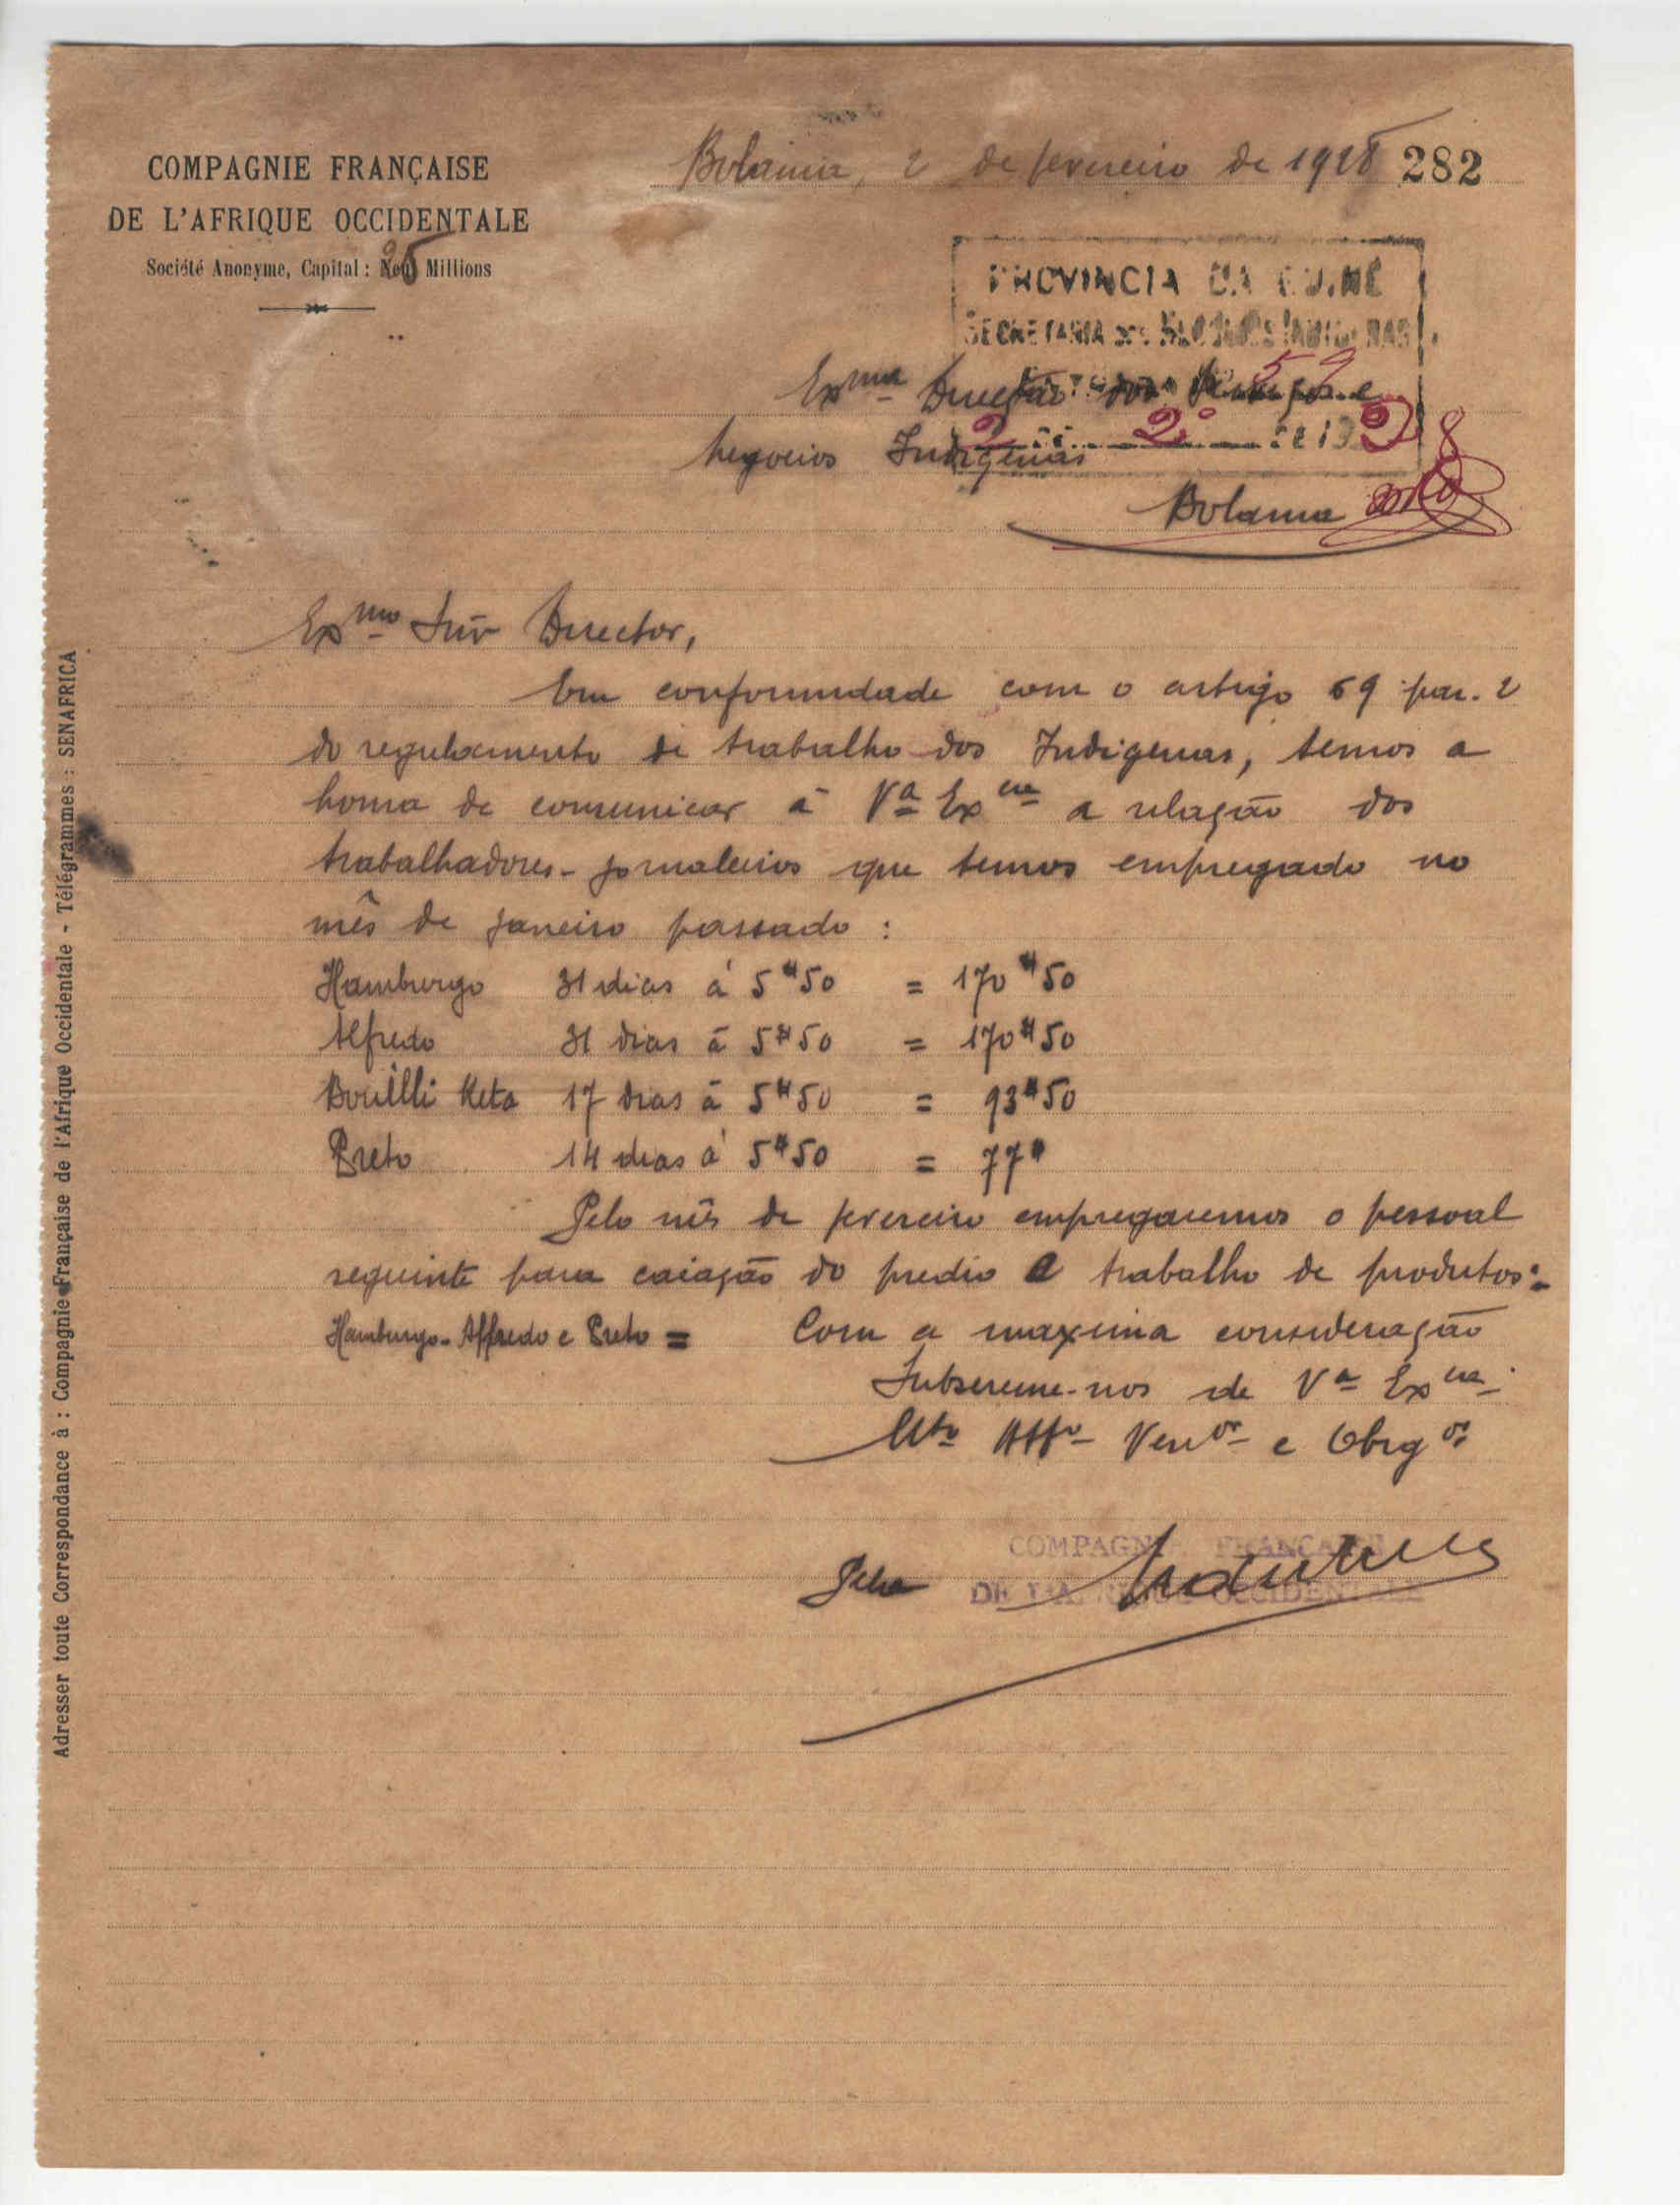 COMPAGNIE FRANÇAISE
DE L'AFRIQUE OCCIDENTALE
Société Anonyme, Capital : 25 Millions
Bolama, 2 de fevereiro de 1928 282
PROVINCIA DA GUINÉ
SECRETARIA DOS NEGOCIOS INDIGENAS
Exma Direcção dos Serviços e
negocios Indigenas
2 2º de 1928
Bolama
Exmo Snr Director,
Em conformidade com o artigo 69 par. 2
do regulamento de trabalho dos Indigenas, temos a
honra de comunicar á Va Excia a relação dos
trabalhadores-jornaleiros que temos empregado no
mês de janeiro passado :
Hamburgo 31 dias á 5$50 = 170$50
Alfredo 31 dias á 5$50 = 170$50
Bouilli Keta 17 dias á 5$50 = 93$50
Preto 14 dias á 5$50 = 77$
Pelo mês de fevereiro empregaremos o pessoal
seguinte para caiação do predio e trabalho de produtos:-
Hamburgo-Alfredo e Preto = Com a maxima consideração
Subscreme-nos de Va Excia
Mto Atto Venor e Obrgor
COMPAGNIE FRANÇAISE
Pela DE L'AFRIQUE OCCIDENTALE
Adresser toute Correspondance à : Compagnie Française de l'Afrique Occidentale - Télégrammes : SENAFRICA